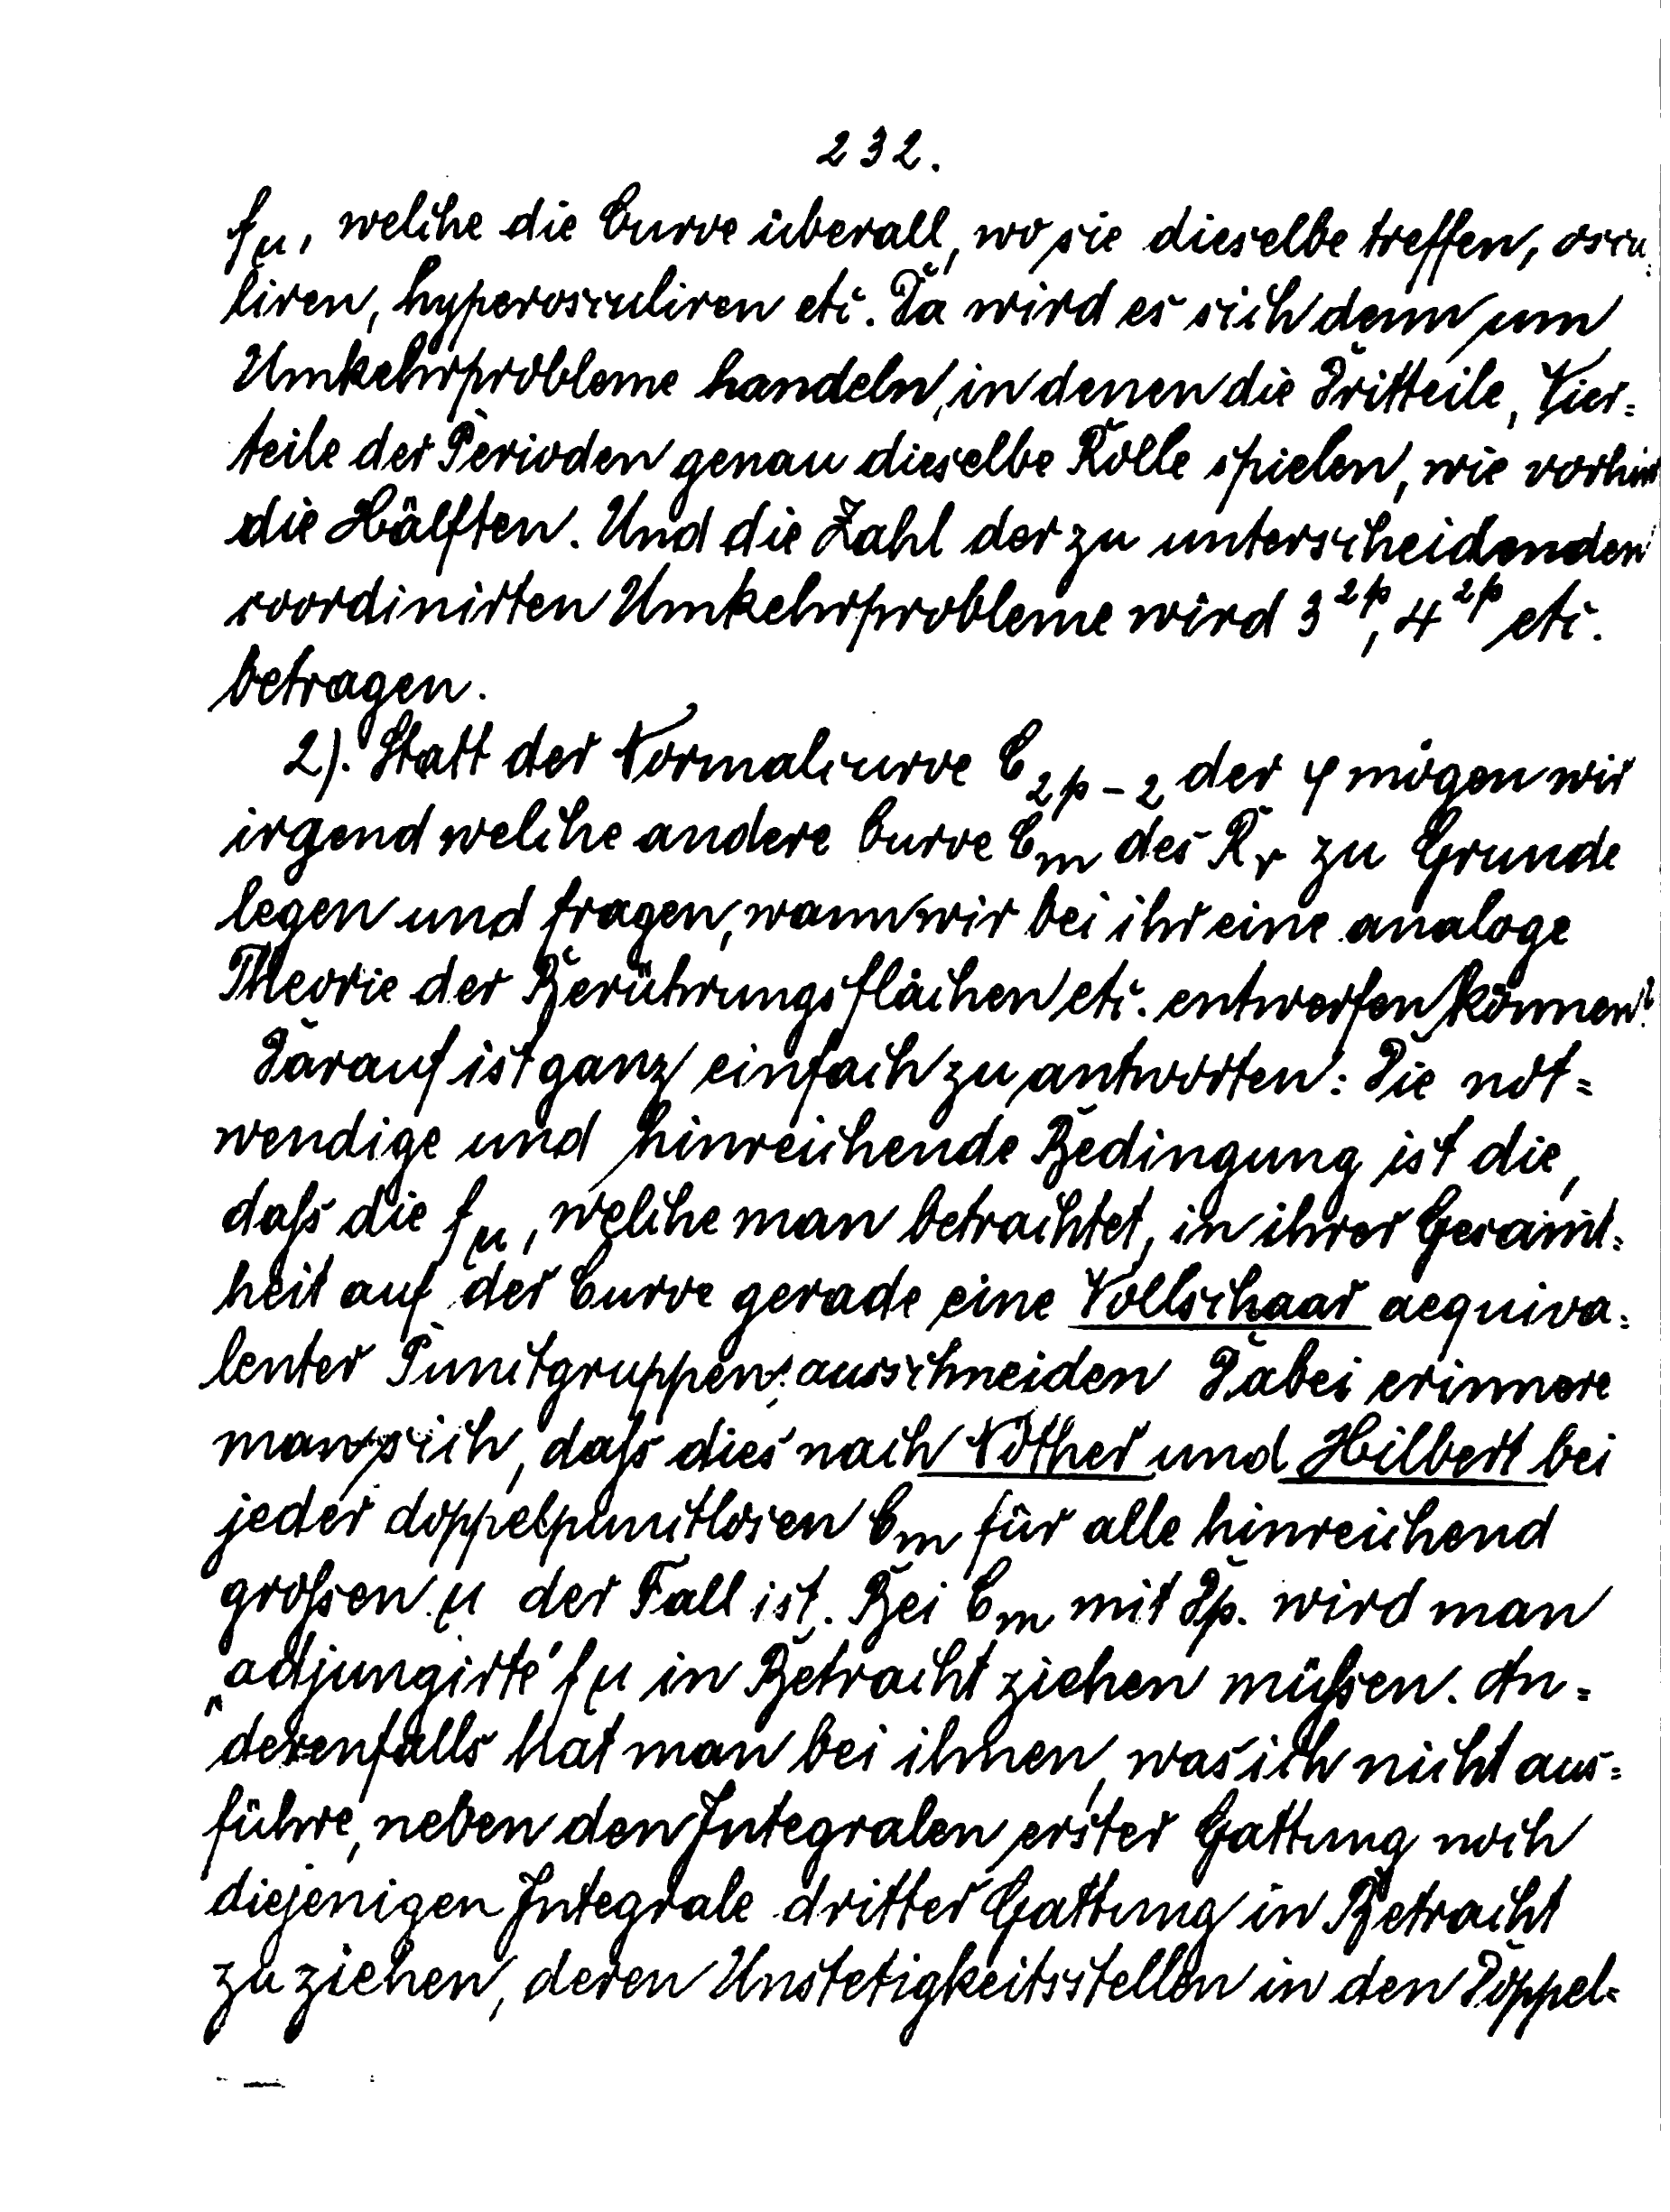 232.
fμ, welche die Curve überall, wo sie dieselbe treffen, oscu=
liren, hyperosculiren etc. Da wird es sich denn um
Umkehrprobleme handeln, in denen die Dritteile, Vier=
teile der Perioden genau dieselbe Rolle spielen, wie vorhin
die Hälften. Und die Zahl der zu unterscheidenden
coordinirten Umkehrprobleme wird 3^{2p}, 4^{2p} etc.
betragen.
2). Statt der Normalcurve C_{2p-2} der φ mögen wir
irgend welche andere Curve C_m des R_r zu Grunde
legen und fragen, wann wir bei ihr eine analoge
Theorie der Berührungsflächen etc. entwerfen können?
Darauf ist ganz einfach zu antworten: Die not=
wendige und hinreichende Bedingung ist die,
daſs die fμ, welche man betrachtet, in ihrer Gesamt=
heit auf der Curve gerade eine Vollschaar aequiva=
lenter Punctgruppen ausschneiden Dabei erinnere
man sich, daſs dies nach Nöther und Hilbert bei
jeder doppelpunctlosen C_m für alle hinreichend
groſsen μ der Fall ist. Bei C_m mit Dp. wird man
„adjungirte" fμ in Betracht ziehen müſsen. An=
derenfalls hat man bei ihnen, was ich nicht aus=
führe, neben den Integralen erster Gattung noch
diejenigen Integrale dritter Gattung in Betracht
zu ziehen, deren Unstetigkeitsstellen in den Doppel=